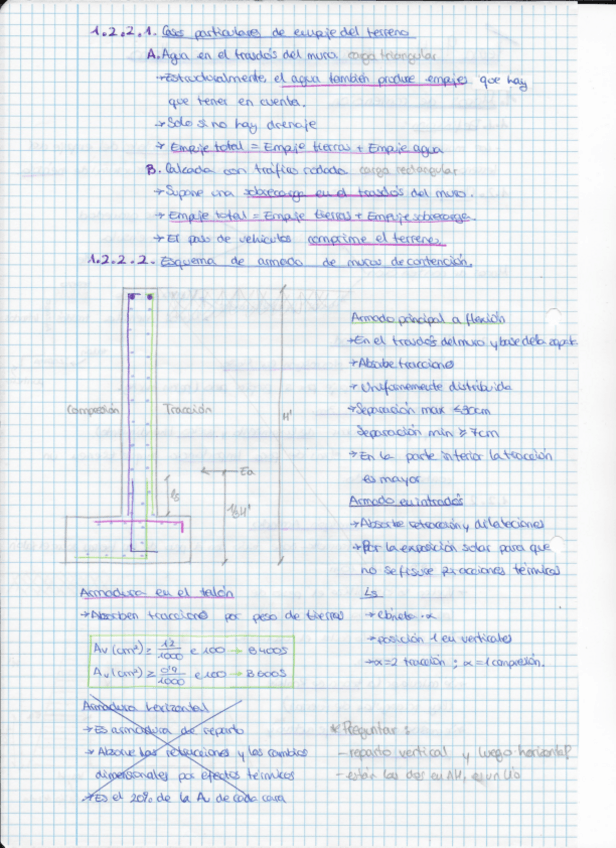 1.2.2.1. Casos particulares de empuje del terreno
A. Agua en el trasdós del muro carga triangular
→ Estructuralmente, el agua también produce empujes que hay
que tener en cuenta.
→ Solo si no hay drenaje
→ Empuje total = Empuje tierras + Empuje agua
B. Calzada con tráfico rodado carga rectangular
→ Supone una sobrecarga en el trasdós del muro.
→ Empuje total = Empuje tierras + Empuje sobrecarga.
→ El paso de vehículos comprime el terreno.
1.2.2.2. Esquema de armado de muros de contención.
Compresión
Tracción
H'
Ea
ls
1/3 H'
Armado principal a flexión
→ En el trasdós del muro y base de la zapata
→ Absorbe tracciones
→ Uniformemente distribuida
→ Separación max ≤30cm
Separación min ≥ 7cm
→ En la parte inferior la tracción
es mayor
Armado en intradós
→ Absorbe retracción y dilataciones
→ Por la exposición solar para que
no se fisure por acciones térmicas
Ls
→ lbneta · α
→ posición 1 en verticales
→ α=2 tracción ; α=1 compresión.
Armadura en el talón
→ Absorben tracciones por peso de tierras
Av (cm²) ≥ 1,2/1000 e 100 → B400S
Av (cm²) ≥ 0,9/1000 e 100 → B600S
Armadura horizontal
→ Es armadura de reparto
→ Absorve las retracciones y los cambios
dimensionales por efectos térmicos
→ Es el 20% de la Av de cada cara
* Preguntar :
- reparto vertical y luego horizontal?
- están las dos en AH, es un lío